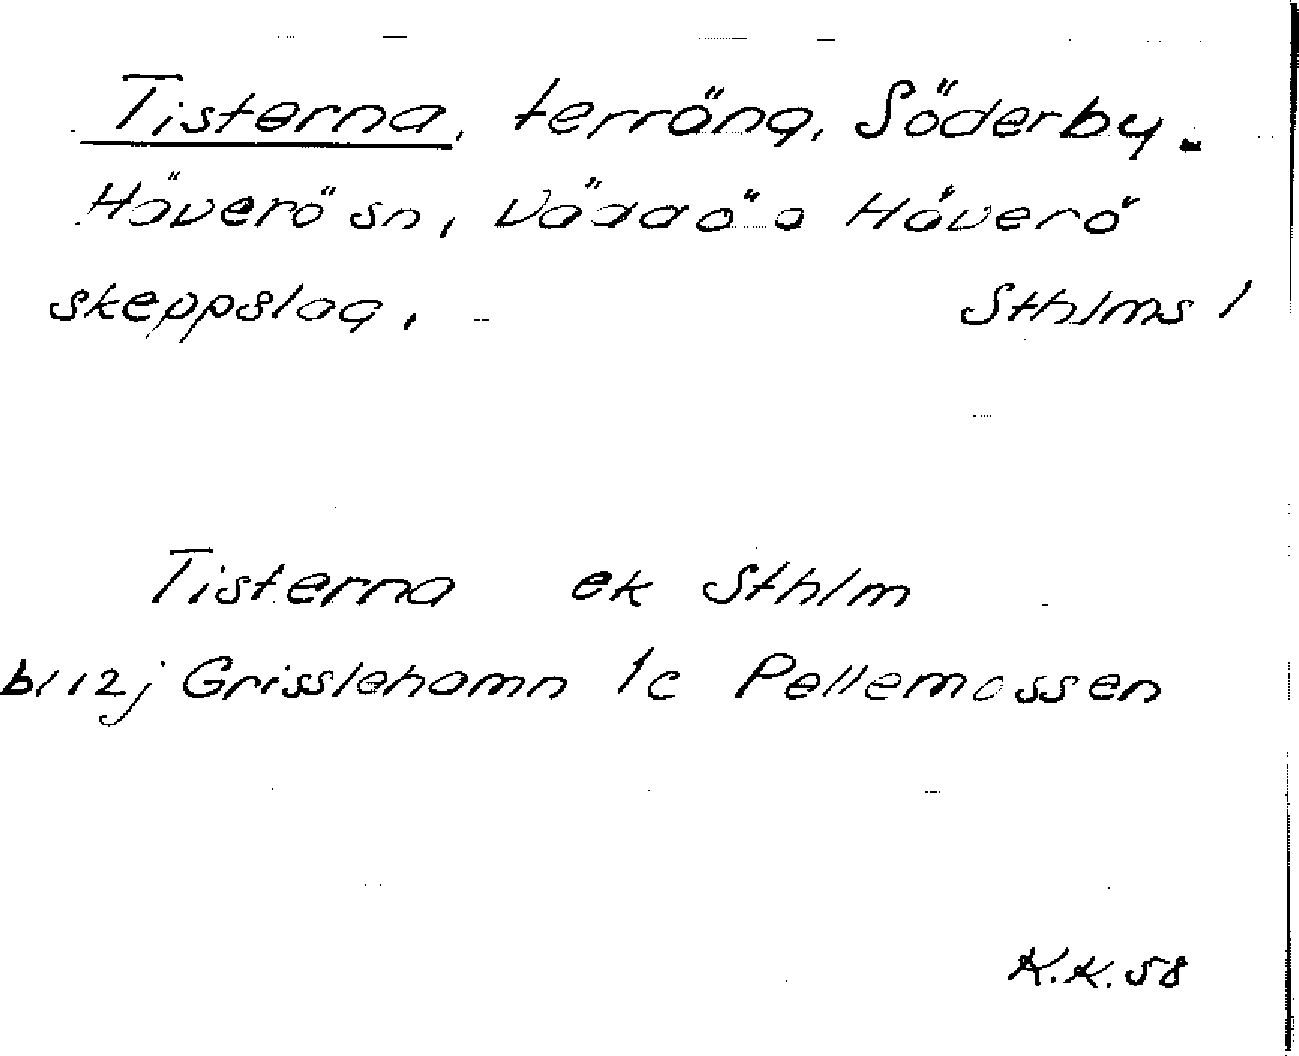 Tisterna, terräng, Söderby-
Häverö sn, Väddö o Häverö
skeppslag, Sthlms l
Tisterna ek Sthlm
bl 12j Grisslehamn 1c Pellemossen
K.K. 58